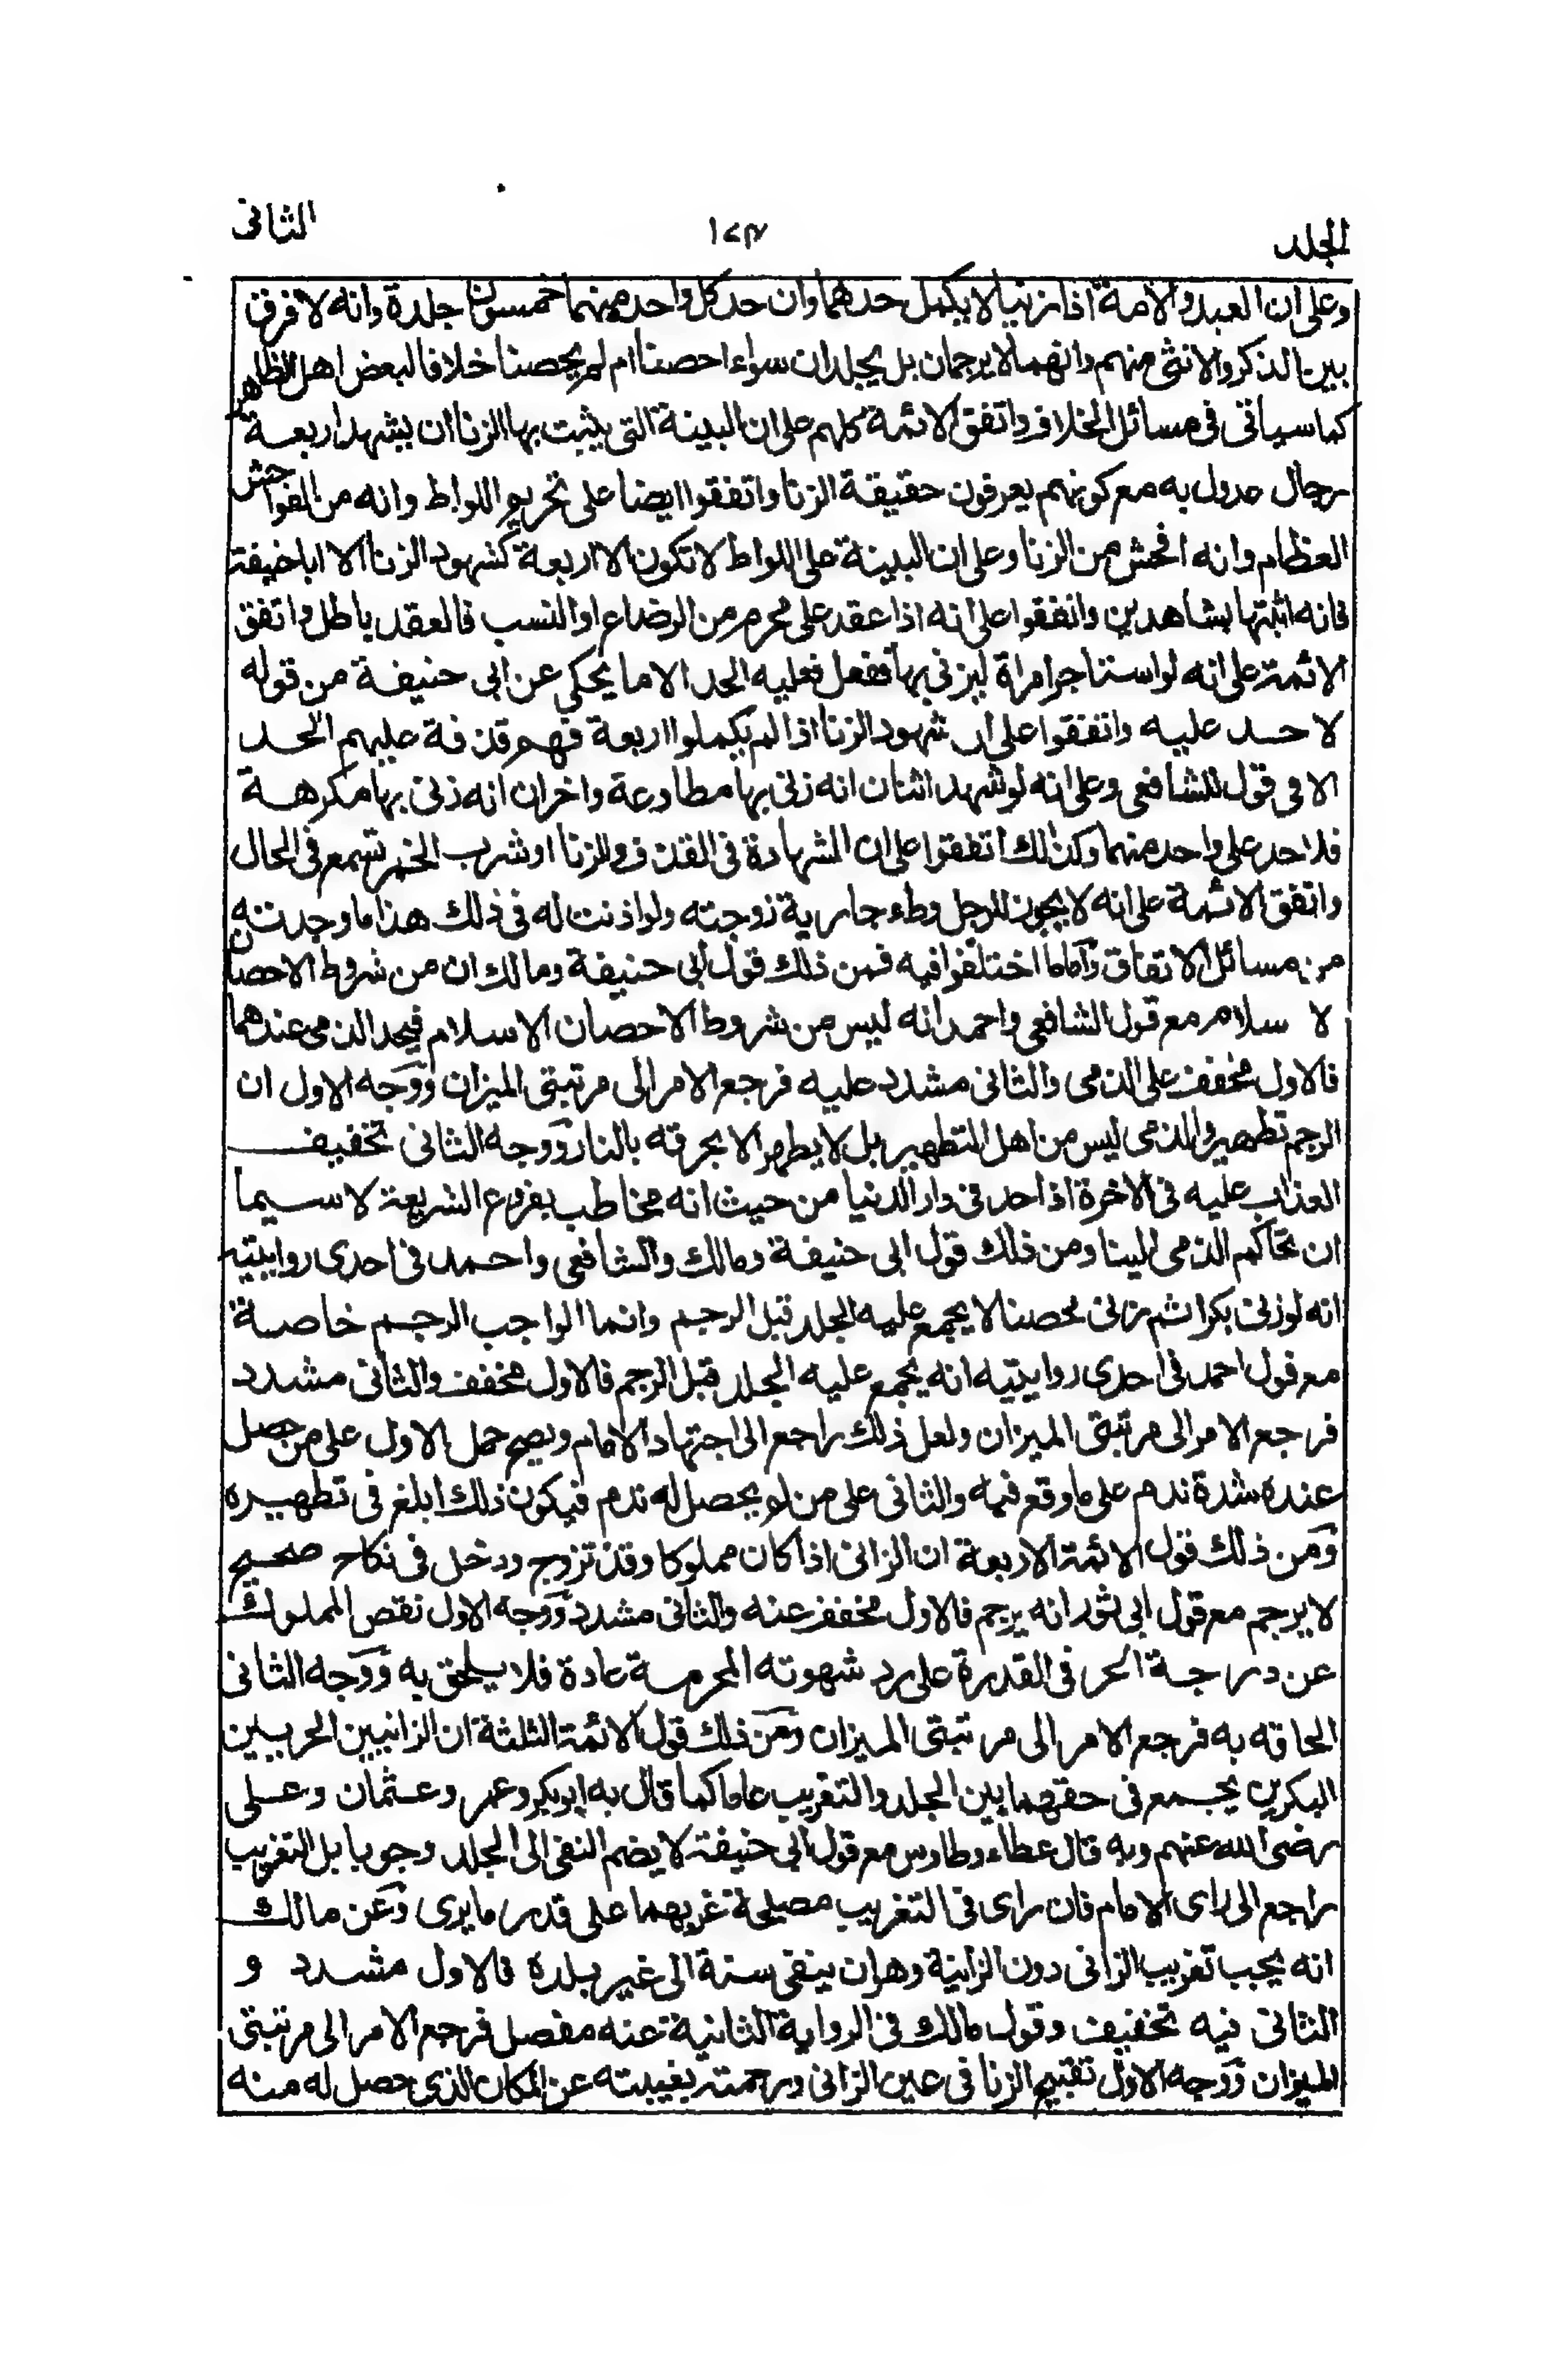 المجلد
١٢٣
الثانى
وعلى ان العبد والامة اذا زنيا لا يكمل حدهما وان حد كل واحد منهما خمسون جلدة وانه لا فرق
بين الذكر والانثى منهم وانهما لا يرجمان بل يجلدان سواء احصنا ام لم يحصنا خلافا لبعض اهل الظاهر
كما سياتى فى مسائل الخلاف واتفق الائمة كلهم على ان البينة التى يثبت بها الزنا ان يشهد اربعة
رجال عدول به مع كونهم يعرفون حقيقة الزنا واتفقوا ايضا على تحريم اللواط وانه من الفواحش
العظام وانه افحش من الزنا وعلى ان البينة على اللواط لا تكون الا اربعة كشهود الزنا الا ابا حنيفة
فانه اثبتها بشاهدين واتفقوا على انه اذا عقد على محرم من الرضاع او النسب فالعقد باطل واتفق
الائمة على انه لو استاجر امراة ليزنى بها ففعل فعليه الحد الا ما يحكى عن ابى حنيفة من قوله
لا حد عليه واتفقوا على ان شهود الزنا اذا لم يكملوا اربعة فهم قذفة عليهم الحد
الا فى قول للشافعى وعلى انه لو شهد اثنان انه زنى بها مطاوعة واخران انه زنى بها مكرهة
فلا حد على واحد منهما وكذلك اتفقوا على ان الشهادة فى القذف والزنا او شرب الخمر تسمع فى الحال
واتفق الائمة على انه لا يجوز للرجل وطء جارية زوجته ولو اذنت له فى ذلك هذا ما وجدته
من مسائل الاتفاق واما ما اختلفوا فيه فمن ذلك قول ابى حنيفة ومالك ان من شروط الاحصان
لا سلام مع قول الشافعى واحمد انه ليس من شروط الاحصان الاسلام فيحد الذمى عندهما
فالاول مخفف على الذمى والثانى مشدد عليه فرجع الامر الى مرتبتى الميزان ووجه الاول ان
الرجم تطهير والذمى ليس من اهل التطهير بل لا يطهر الا بحرقه بالنار ووجه الثانى تخفيف
العذاب عليه فى الاخرة اذا حد فى دار الدنيا من حيث انه مخاطب بفروع الشريعة لا سيما
ان تحاكم الذمى الينا ومن ذلك قول ابى حنيفة ومالك والشافعى واحمد فى احدى روايتيه
انه لو زنى بكرا ثم زنى محصنا لا يجمع عليه الجلد قبل الرجم وانما الواجب الرجم خاصة
مع قول احمد فى احدى روايتيه انه يجمع عليه الجلد قبل الرجم فالاول مخفف والثانى مشدد
فرجع الامر الى مرتبتى الميزان ولعل ذلك راجع الى اجتهاد الامام ويصح حمل الاول على من حصل
عنده شدة ندم على ما وقع فيه والثانى على من لم يحصل له ندم فيكون ذلك ابلغ فى تطهيره
ومن ذلك قول الائمة الاربعة ان الزانى اذا كان مملوكا وقد تزوج ودخل فى نكاح صحيح
لا يرجم مع قول ابى ثور انه يرجم فالاول مخفف عنه والثانى مشدد ووجه الاول نقص المملوك
عن درجة الحر فى القدرة على رد شهوته المحرمة عادة فلا يلحق به ووجه الثانى
الحاقه به فرجع الامر الى مرتبتى الميزان ومن ذلك قول الائمة الثلثة ان الزانيين الحريين
البكرين يجمع فى حقهما بين الجلد والتغريب عاما كما قال به ابوبكر وعمر وعثمان وعلى
رضى الله عنهم وبه قال عطاء وطاوس مع قول ابى حنيفة لا يضم النفى الى الجلد وجوبا بل التغريب
راجع الى راى الامام فان راى فى التغريب مصلحة غربهما على قدر ما يرى وعن مالك
انه يجب تغريب الزانى دون الزانية وهو ان ينفى سنة الى غير بلده فالاول مشدد و
الثانى فيه تخفيف وقول مالك فى الرواية الثانية عنه مفصل فرجع الامر الى مرتبتى
الميزان ووجه الاول تقبيح الزنا فى عين الزانى ورحمته بغيبته عن المكان الذى حصل له منه